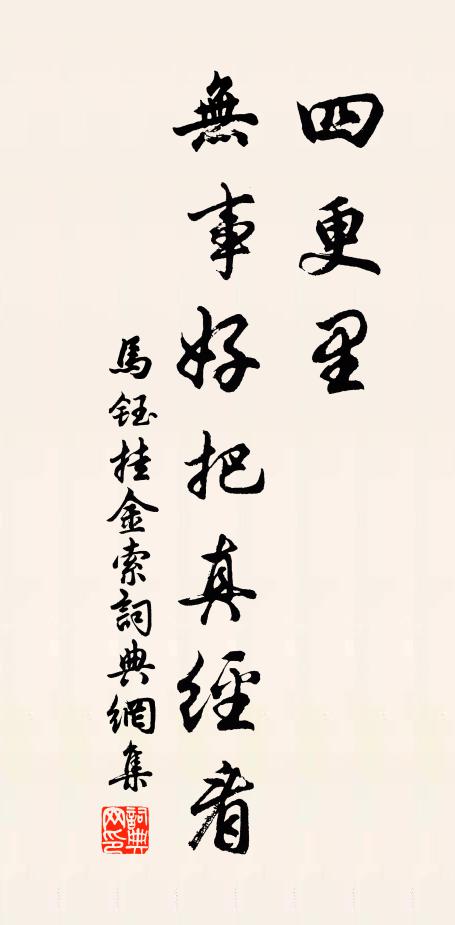 四更里
無事好把真經看
馬鈺挂金索詞典網集
詞典
网印